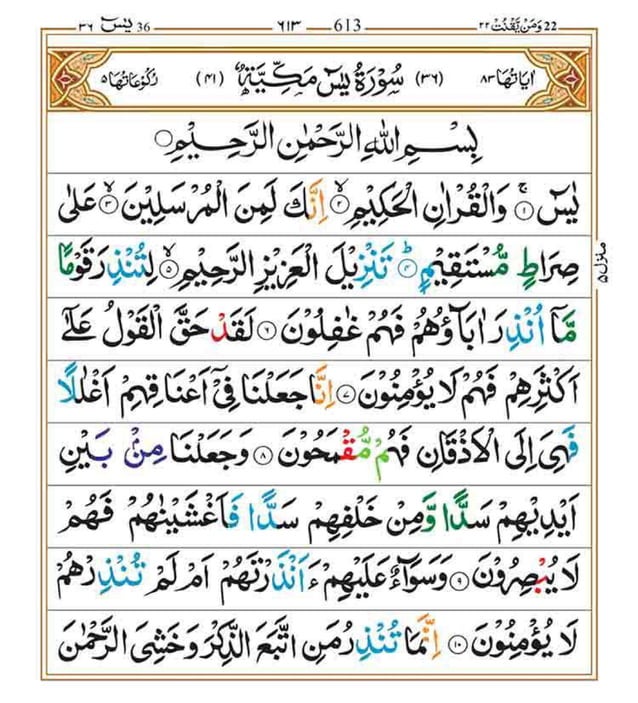 يٰسٓ 36 ٦١٣ 613 وَمَن يَّقْنُتْ 22
اٰيَاتُهَا ٨٣ (٣٦) سُوْرَةُ يٰسٓ مَكِّيَّةٌ (٤١) رُكُوْعَاتُهَا ٥
بِسْمِ اللّٰهِ الرَّحْمٰنِ الرَّحِيْمِ
يٰسٓ ۚ‏ ١ وَالْقُرْاٰنِ الْحَكِيْمِ ۙ‏ ٢ اِنَّكَ لَمِنَ الْمُرْسَلِيْنَ ۙ‏ ٣ عَلٰى
صِرَاطٍ مُّسْتَقِيْمٍ ؕ‏ ٤ تَنْزِيْلَ الْعَزِيْزِ الرَّحِيْمِ ۙ‏ ٥ لِتُنْذِرَ قَوْمًا
مَّاۤ اُنْذِرَ اٰبَآؤُهُمْ فَهُمْ غٰفِلُوْنَ ٦ لَقَدْ حَقَّ الْقَوْلُ عَلٰٓى
اَكْثَرِهِمْ فَهُمْ لَا يُؤْمِنُوْنَ ٧ اِنَّا جَعَلْنَا فِيْۤ اَعْنَاقِهِمْ اَغْلٰلًا
فَهِيَ اِلَى الْاَذْقَانِ فَهُمْ مُّقْمَحُوْنَ ٨ وَجَعَلْنَا مِنْۢ بَيْنِ
اَيْدِيْهِمْ سَدًّا وَّمِنْ خَلْفِهِمْ سَدًّا فَاَغْشَيْنٰهُمْ فَهُمْ
لَا يُبْصِرُوْنَ ٩ وَسَوَآءٌ عَلَيْهِمْ ءَاَنْذَرْتَهُمْ اَمْ لَمْ تُنْذِرْهُمْ
لَا يُؤْمِنُوْنَ ١٠ اِنَّمَا تُنْذِرُ مَنِ اتَّبَعَ الذِّكْرَ وَخَشِيَ الرَّحْمٰنَ
منزل ٥